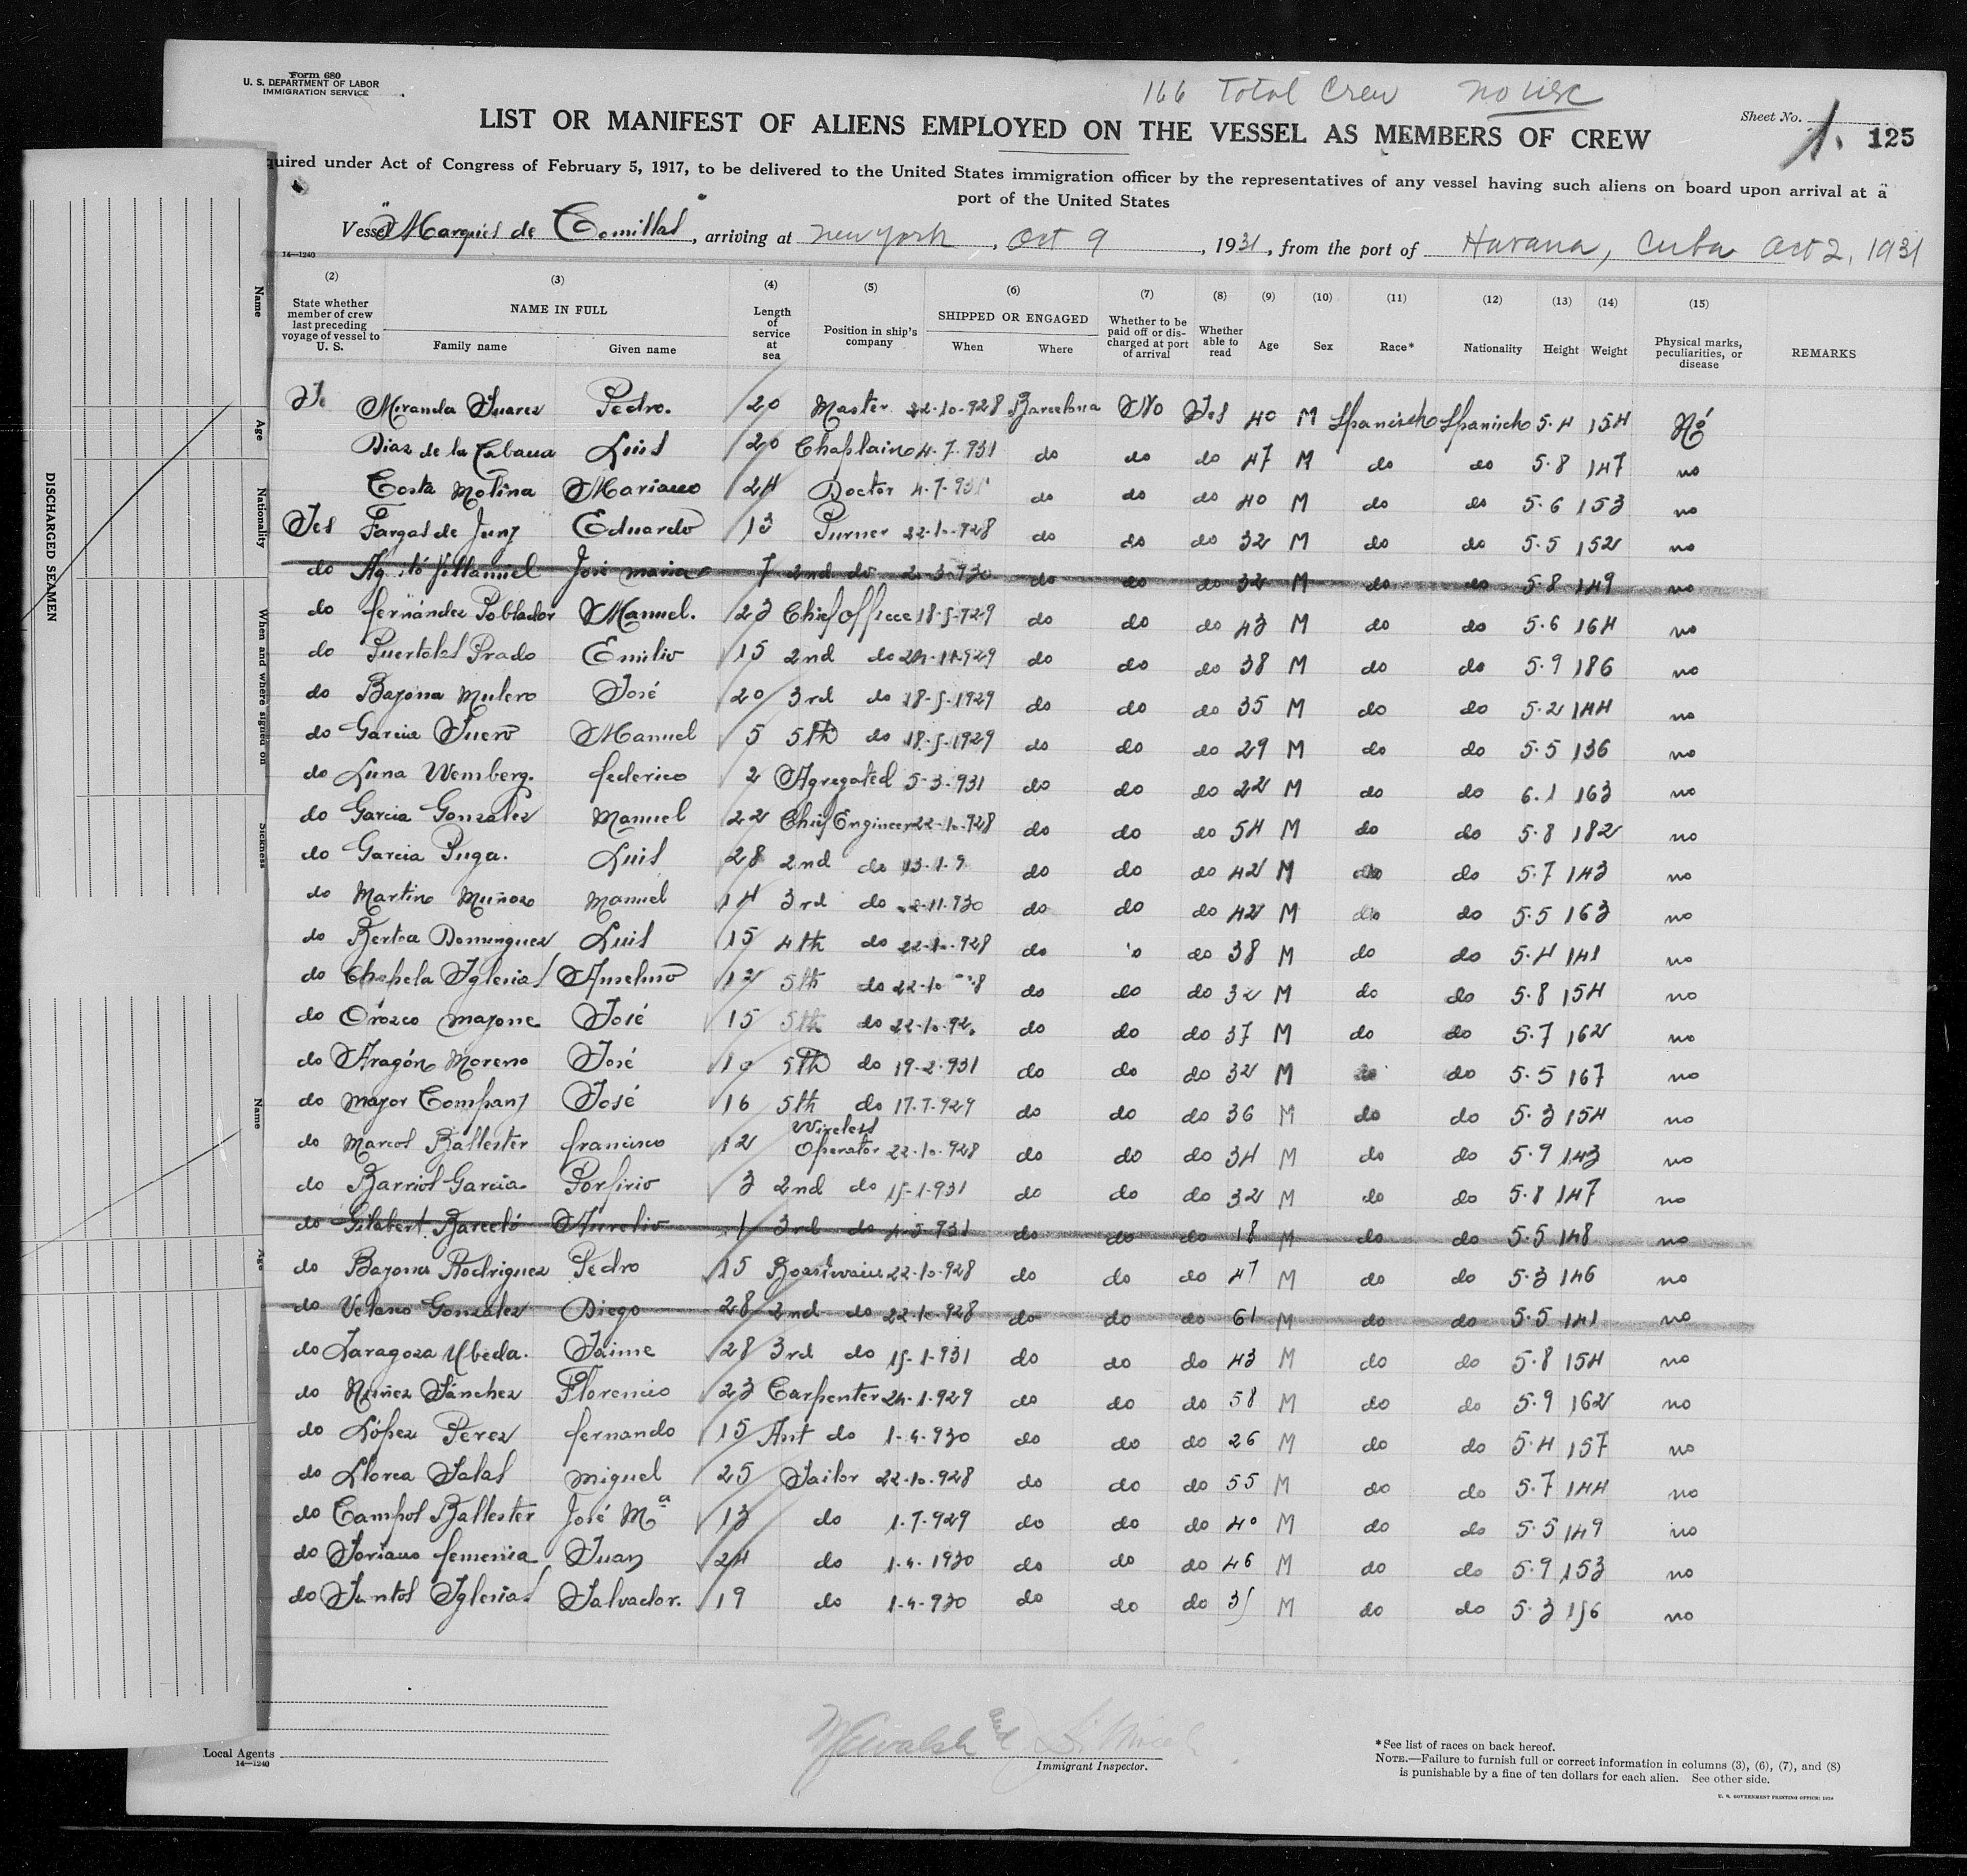 Form 680
U. S. DEPARTMENT OF LABOR
IMMIGRATION SERVICE
166 Total Crew no visa
LIST OR MANIFEST OF ALIENS EMPLOYED ON THE VESSEL AS MEMBERS OF CREW
Sheet No. 1. 125
quired under Act of Congress of February 5, 1917, to be delivered to the United States immigration officer by the representatives of any vessel having such aliens on board upon arrival at a
port of the United States
Vessel "Marqués de Comillas", arriving at New York, Oct 9, 1931, from the port of Havana, Cuba Oct 2, 1931
14—1240
(2) (3) (4) (5) (6) (7) (8) (9) (10) (11) (12) (13) (14) (15)
State whether member of crew last preceding voyage of vessel to U. S. NAME IN FULL Family name Given name Length of service at sea Position in ship's company SHIPPED OR ENGAGED When Where Whether to be paid off or discharged at port of arrival Whether able to read Age Sex Race* Nationality Height Weight Physical marks, peculiarities, or disease REMARKS
Miranda Suarez Pedro. 20 Master 22-10-928 Barcelona No Yes 40 M Spanish Spanish 5.4 154 No
Diaz de la Luis 20 Chaplain 4.7.931 do do do 47 M do do 5.8 147 no
Costa Molina Mariano 24 Doctor 4.7.931 do do do 40 M do do 5.6 153 no
Yes Fargas de Juny Eduardo 13 Purser 22-10-928 do do do 32 M do do 5.5 152 no
do José Maria 7 2nd do 2-3-930 do do do 32 M do do 5.8 149 no
do Fernández Poblador Manuel. 23 Chief Officer 18-5-929 do do do 43 M do do 5.6 164 no
do Puertolas Prado Emilio 15 2nd do 24-11-929 do do do 38 M do do 5.9 186 no
do Bayona Mulero José 20 3rd do 18-5-1929 do do do 35 M do do 5.2 144 no
do Garcia Suero Manuel 5 5th do 18-5-1929 do do do 29 M do do 5.5 136 no
do Luna Wemberg. Federico 2 Agregated 5-3-931 do do do 22 M do do 6.1 163 no
do Garcia Gonzalez Manuel 22 Chief Engineer 22-10-928 do do do 54 M do do 5.8 182 no
do Garcia Puga. Luis 28 2nd do 13-1-9 do do do 42 M do do 5.7 143 no
do Martino Muñoz Manuel 14 3rd do 2-11-930 do do do 42 M do do 5.5 163 no
do Bertoa Dominguez Luis 15 4th do 22-10-928 do do do 38 M do do 5.4 141 no
do Chapela Iglesias Anselmo 12 5th do 22-10 8 do do do 32 M do do 5.8 154 no
do Orozco Mayone José 15 5th do 22-10-92 do do do 37 M do do 5.7 162 no
do Aragón Moreno José 10 5th do 19-2-931 do do do 32 M do do 5.5 167 no
do Mayor Company José 16 5th do 17-7-929 do do do 36 M do do 5.3 154 no
do Marcos Ballester Francisco 12 Wireless Operator 22-10-928 do do do 34 M do do 5.9 143 no
do Barrios Garcia Porfirio 3 2nd do 15-1-931 do do do 32 M do do 5.8 147 no
do Gilabert Barceló Aurelio 1 3rd do 4-5-931 do do do 18 M do do 5.5 148 no
do Bayona Rodriguez Pedro 15 Boastwain 22-10-928 do do do 47 M do do 5.3 146 no
do Velasco Gonzalez Diego 28 2nd do 22-10-928 do do do 61 M do do 5.5 141 no
do Zaragoza Ubeda. Jaime 28 3rd do 15-1-931 do do do 43 M do do 5.8 154 no
do Núñez Sánchez Florencio 23 Carpenter 24-1-929 do do do 58 M do do 5.9 162 no
do López Perez Fernando 15 do 1-4-930 do do do 26 M do do 5.4 157 no
do Llorca Salas Miguel 25 Sailor 22-10-928 do do do 55 M do do 5.7 144 no
do Campos Ballester José Mª 13 do 1-7-929 do do do 40 M do do 5.5 149 no
do Soriano Femenia Juan 24 do 1-4-1930 do do do 46 M do do 5.9 153 no
do Santos Iglesias Salvador. 19 do 1-4-930 do do do 35 M do do 5.3 156 no
Name
Age
Nationality
When and where signed on
Sickness
Name
Age
DISCHARGED SEAMEN
Local Agents
14—1240
and
Immigrant Inspector.
*See list of races on back hereof.
NOTE.—Failure to furnish full or correct information in columns (3), (6), (7), and (8)
is punishable by a fine of ten dollars for each alien. See other side.
U. S. GOVERNMENT PRINTING OFFICE: